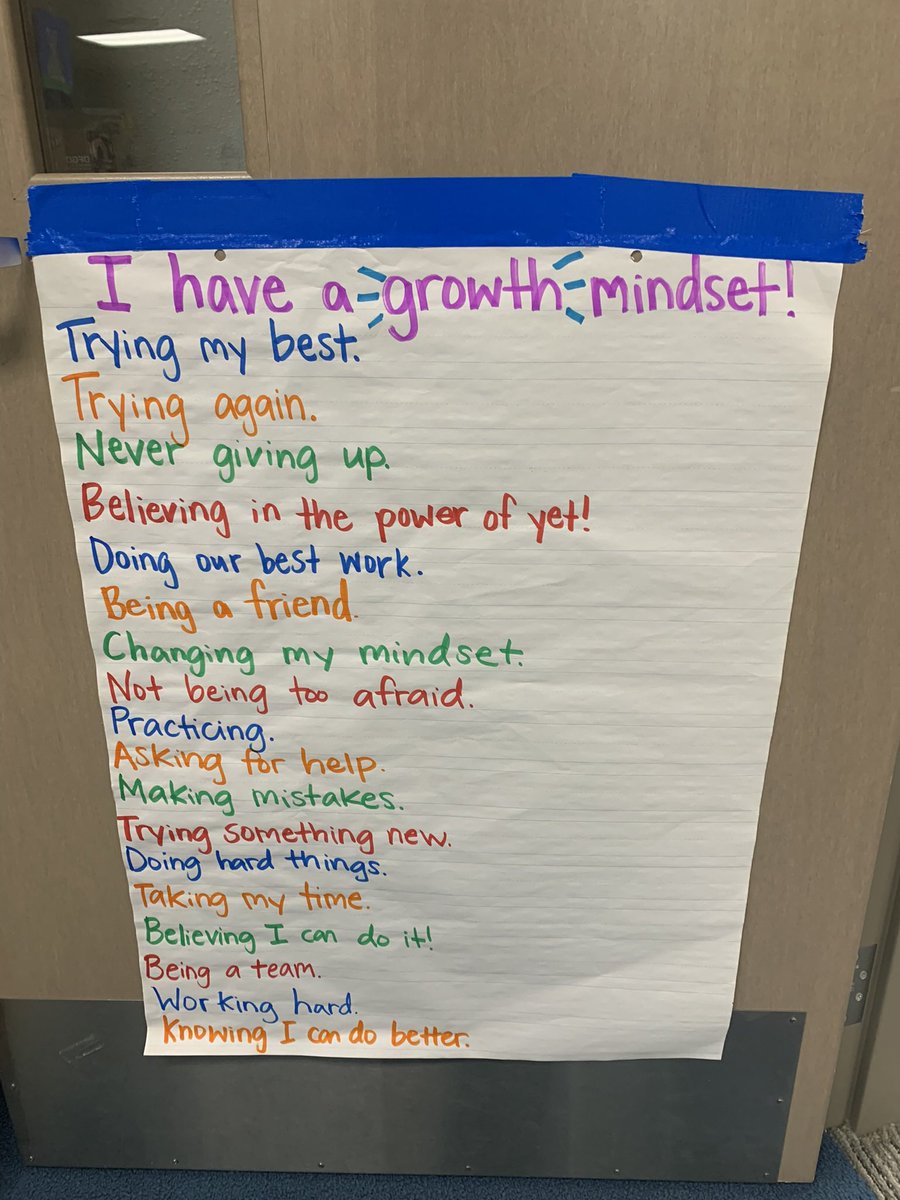 I have a growth mindset!
Trying my best.
Trying again.
Never giving up.
Believing in the power of yet!
Doing our best work.
Being a friend.
Changing my mindset.
Not being too afraid.
Practicing.
Asking for help.
Making mistakes.
Trying something new.
Doing hard things.
Taking my time.
Believing I can do it!
Being a team.
Working hard.
Knowing I can do better.